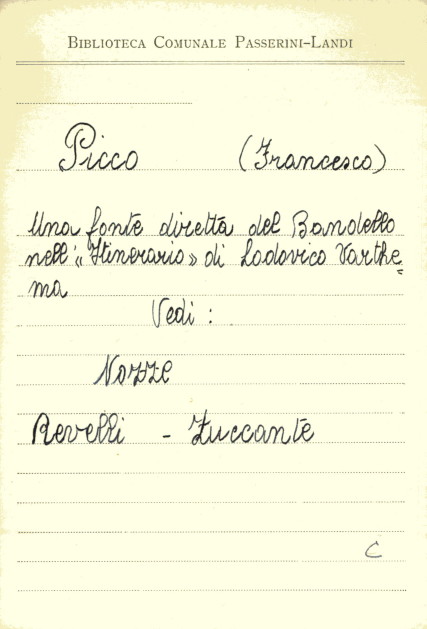 BIBLIOTECA COMUNALE PASSERINI-LANDI
Picco (Francesco)
Una fonte diretta del Bandello
nell'«Itinerario» di Lodovico Varthe=
ma
Vedi :
Nozze
Revelli - Zuccante
C